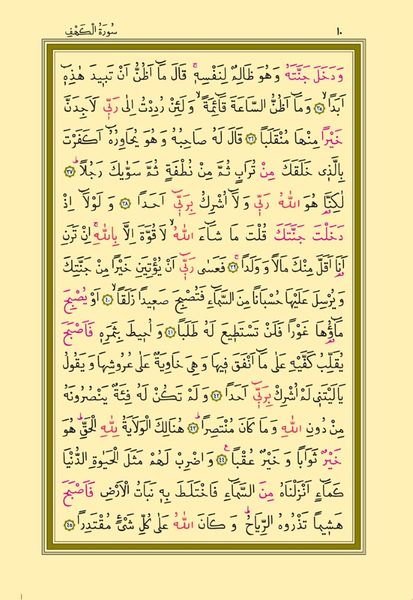 ١٠ سُورَةُ الْكَهْفِ
وَدَخَلَ جَنَّتَهُ وَهُوَ ظَالِمٌ لِنَفْسِهِۚ قَالَ مَٓا اَظُنُّ اَنْ تَبٖيدَ هٰذِهٖٓ
اَبَداًۙ ﴿٣٥﴾ وَمَٓا اَظُنُّ السَّاعَةَ قَٓائِمَةًۙ وَلَئِنْ رُدِدْتُ اِلٰى رَبّٖى لَاَجِدَنَّ
خَيْراً مِنْهَا مُنْقَلَباً ﴿٣٦﴾ قَالَ لَهُ صَاحِبُهُ وَهُوَ يُحَاوِرُهُٓ اَكَفَرْتَ
بِالَّذٖى خَلَقَكَ مِنْ تُرَابٍ ثُمَّ مِنْ نُطْفَةٍ ثُمَّ سَوّٰيكَ رَجُلاًؕ ﴿٣٧﴾
لٰكِنَّا۬ هُوَ اللّٰهُ رَبّٖى وَلَٓا اُشْرِكُ بِرَبّٖٓى اَحَداً ﴿٣٨﴾ وَلَوْلَٓا اِذْ
دَخَلْتَ جَنَّتَكَ قُلْتَ مَا شَٓاءَ اللّٰهُۙ لَا قُوَّةَ اِلَّا بِاللّٰهِۚ اِنْ تَرَنِ
اَنَا۬ اَقَلَّ مِنْكَ مَالاً وَوَلَداًۚ ﴿٣٩﴾ فَعَسٰى رَبّٖٓى اَنْ يُؤْتِيَنِ خَيْراً مِنْ جَنَّتِكَ
وَيُرْسِلَ عَلَيْهَا حُسْبَاناً مِنَ السَّمَٓاءِ فَتُصْبِحَ صَعٖيداً زَلَقاًۙ ﴿٤٠﴾ اَوْ يُصْبِحَ
مَٓاؤُ۬هَا غَوْراً فَلَنْ تَسْتَطٖيعَ لَهُ طَلَباً ﴿٤١﴾ وَاُحٖيطَ بِثَمَرِهٖ فَاَصْبَحَ
يُقَلِّبُ كَفَّيْهِ عَلٰى مَٓا اَنْفَقَ فٖيهَا وَهِىَ خَاوِيَةٌ عَلٰى عُرُوشِهَا وَيَقُولُ
يَا لَيْتَنٖى لَمْ اُشْرِكْ بِرَبّٖٓى اَحَداً ﴿٤٢﴾ وَلَمْ تَكُنْ لَهُ فِئَةٌ يَنْصُرُونَهُ
مِنْ دُونِ اللّٰهِ وَمَا كَانَ مُنْتَصِراًؕ ﴿٤٣﴾ هُنَالِكَ الْوَلَايَةُ لِلّٰهِ الْحَقِّؕ هُوَ
خَيْرٌ ثَوَاباً وَخَيْرٌ عُقْباًࣖ ﴿٤٤﴾ وَاضْرِبْ لَهُمْ مَثَلَ الْحَيٰوةِ الدُّنْيَا
كَمَٓاءٍ اَنْزَلْنَاهُ مِنَ السَّمَٓاءِ فَاخْتَلَطَ بِهٖ نَبَاتُ الْاَرْضِ فَاَصْبَحَ
هَشٖيماً تَذْرُوهُ الرِّيَاحُؕ وَكَانَ اللّٰهُ عَلٰى كُلِّ شَىْءٍ مُقْتَدِراً ﴿٤٥﴾